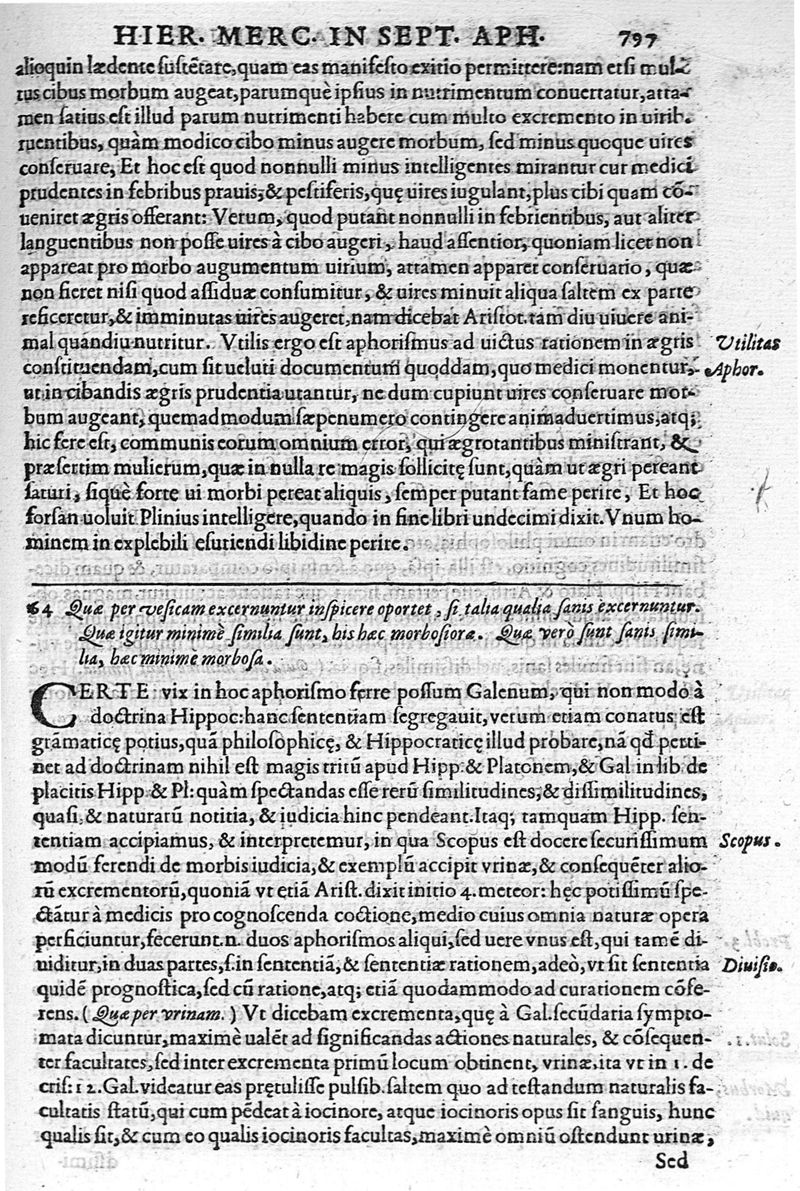 HIER. MERC. IN SEPT. APH. 797
alioquin lædente sustētare, quam eas manifesto exitio permittere: nam etsi mul-
tus cibus morbum augeat, parumquè ipsius in nutrimentum conuertatur, atta-
men satius est illud parum nutrimenti habere cum multo excremento in uirib.
ruentibus, quàm modico cibo minus augere morbum, sed minus quoque uires
conseruare, Et hoc est quod nonnulli minus intelligentes mirantur cur medici
prudentes in febribus prauis; & pestiferis, quę uires iugulant, plus cibi quam cō-
ueniret ægris offerant: Verum, quod putant nonnulli in febrientibus, aut aliter
languentibus non posse uires à cibo augeri, haud assentior, quoniam licet non
appareat pro morbo augumentum uirium, attamen apparet conseruatio, quæ
non fieret nisi quod assiduæ consumitur, & uires minuit aliqua saltem ex parte
reficeretur, & imminutas uires augeret, nam dicebat Aristot. tam diu uiuere ani-
mal quandiu nutritur. Vtilis ergo est aphorismus ad uictus rationem in ægris
Utilitas
constituendam, cum sit ueluti documentum quoddam, quo medici monentur,
Aphor.
ut in cibandis ægris prudentia utantur, ne dum cupiunt uires conseruare mor-
bum augeant, quemadmodum sæpenumero contingere animaduertimus, atq;
hic fere est, communis eorum omnium error, qui ægrotantibus ministrant, &
præsertim mulierum, quæ in nulla re magis sollicitę sunt, quàm ut ægri pereant
saturi, siquè forte ui morbi pereat aliquis, semper putant fame perire, Et hoc
forsan uoluit Plinius intelligere, quando in fine libri undecimi dixit. Vnum ho-
minem in explebili esuriendi libidine perire.
64 Quæ per vesicam excernuntur inspicere oportet, si talia qualia sanis excernuntur.
Quæ igitur minimè similia sunt, his hæc morbosiora. Quæ verò sunt sanis simi-
lia, hæc minime morbosa.
CERTE vix in hoc aphorismo ferre possum Galenum, qui non modo à
doctrina Hippoc: hanc sententiam segregauit, verum etiam conatus est
gramaticę potius, quā philosophicę, & Hippocraticę illud probare, nā qđ perti-
net ad doctrinam nihil est magis tritū apud Hipp & Platonem, & Gal in lib. de
placitis Hipp & Pl: quàm spectandas esse rerū similitudines, & dissimilitudines,
quasi & naturarū notitia, & iudicia hinc pendeant. Itaq; tamquam Hipp. sen-
tentiam accipiamus, & interpretemur, in qua Scopus est docere securissimum
Scopus.
modū ferendi de morbis iudicia, & exemplū accipit vrinæ, & consequēter alio-
rū excrementorū, quoniā vt etiā Arist. dixit initio 4. meteor: hęc potissimū spe-
ctātur à medicis pro cognoscenda coctione, medio cuius omnia naturæ opera
perficiuntur, fecerunt.n. duos aphorismos aliqui, sed uere vnus est, qui tamē di-
uiditur, in duas partes, s. in sententiā, & sententiæ rationem, adeò, vt sit sententia
Diuisio.
quidē prognostica, sed cū ratione, atq; etiā quodammodo ad curationem cōfe-
rens. (Quæ per vrinam.) Vt dicebam excrementa, quę à Gal. secūdaria sympto-
mata dicuntur, maximè ualēt ad significandas actiones naturales, & cōsequen-
ter facultates, sed inter excrementa primū locum obtinent, vrinæ, ita vt in 1. de
cris: 12. Gal. videatur eas prętulisse pulsib. saltem quo ad testandum naturalis fa-
cultatis statū, qui cum pēdeat à iocinore, atque iocinoris opus sit sanguis, hunc
qualis sit, & cum eo qualis iocinoris facultas, maximè omniū ostendunt urinæ,
Sed